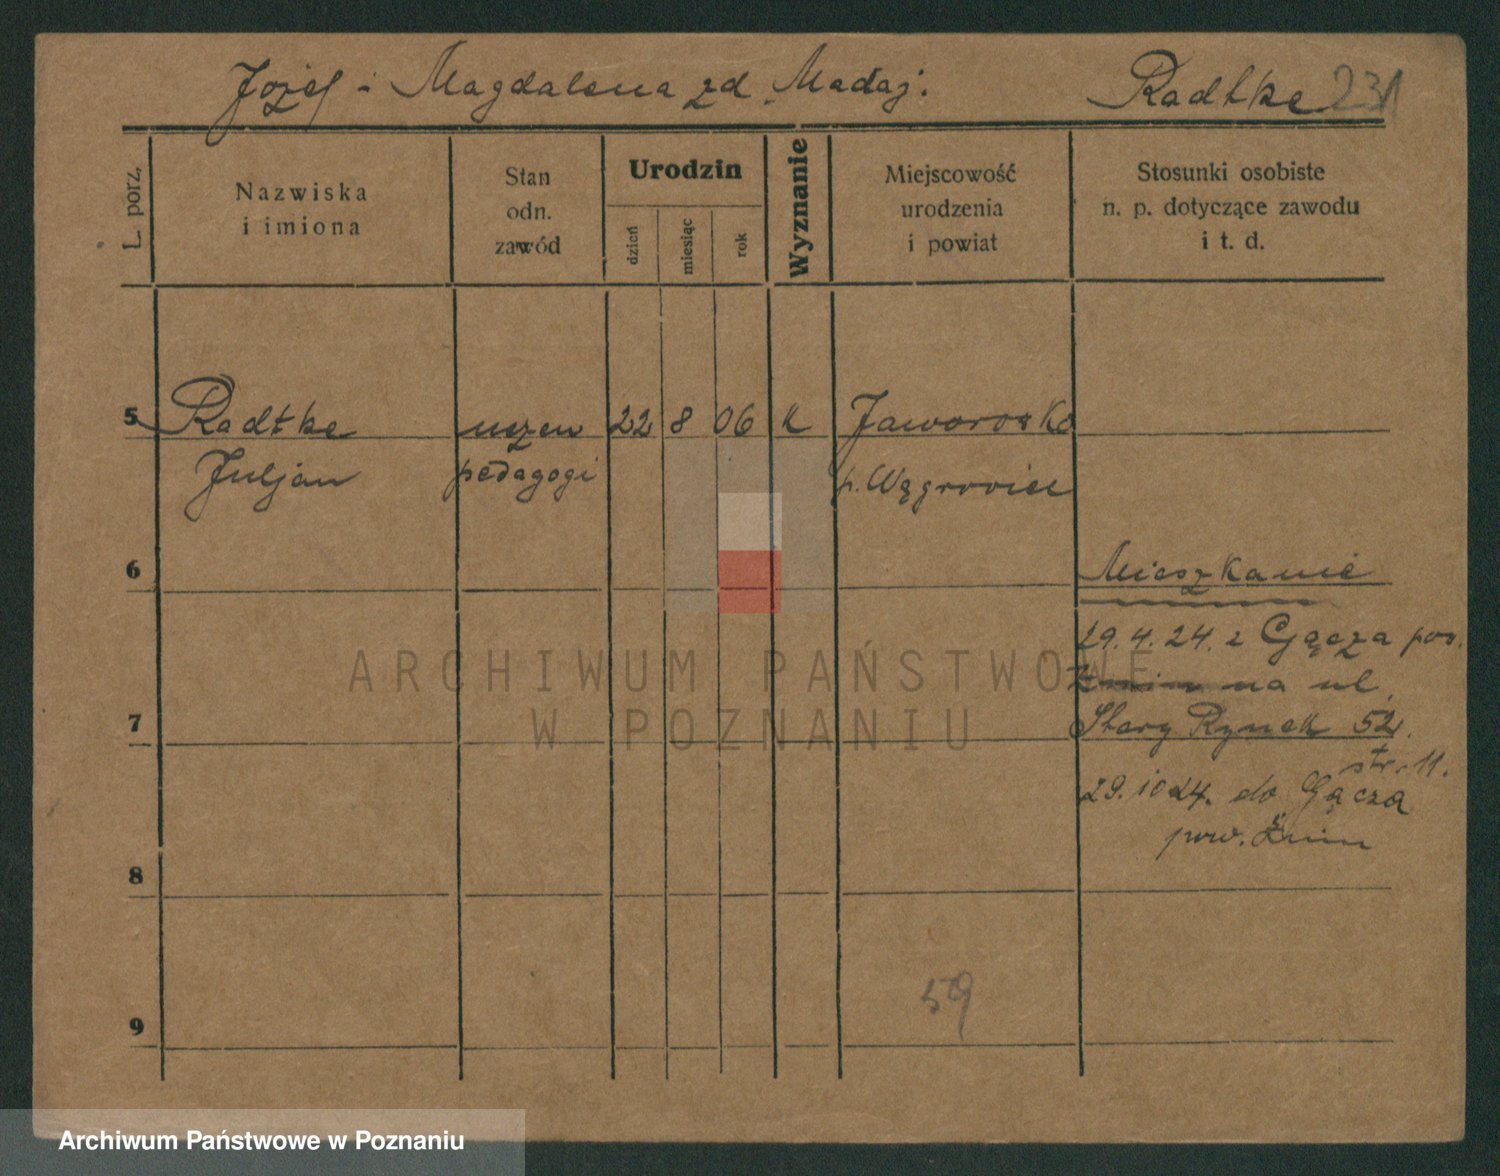 Józef i Magdalena zd. Madaj. Radtke 231
L. porz.
Nazwiska
i imiona
Stan
odn.
zawód
Urodzin
dzień
miesiąc
rok
Wyznanie
Miejscowość
urodzenia
i powiat
Stosunki osobiste
n. p. dotyczące zawodu
i t. d.
5 Radtke uczen 22 8 06 k Jaworowko
Juljan pedagogi p. Wągrowiec
6 Mieszkanie
29.4.24. z Gącza pow.
Żnin na ul.
7 Stary Rynek 52.
str. 11.
29.10 24. do Gącza
pow. Żnin
8
59
9
ARCHIWUM PAŃSTWOWE
W POZNANIU
Archiwum Państwowe w Poznaniu